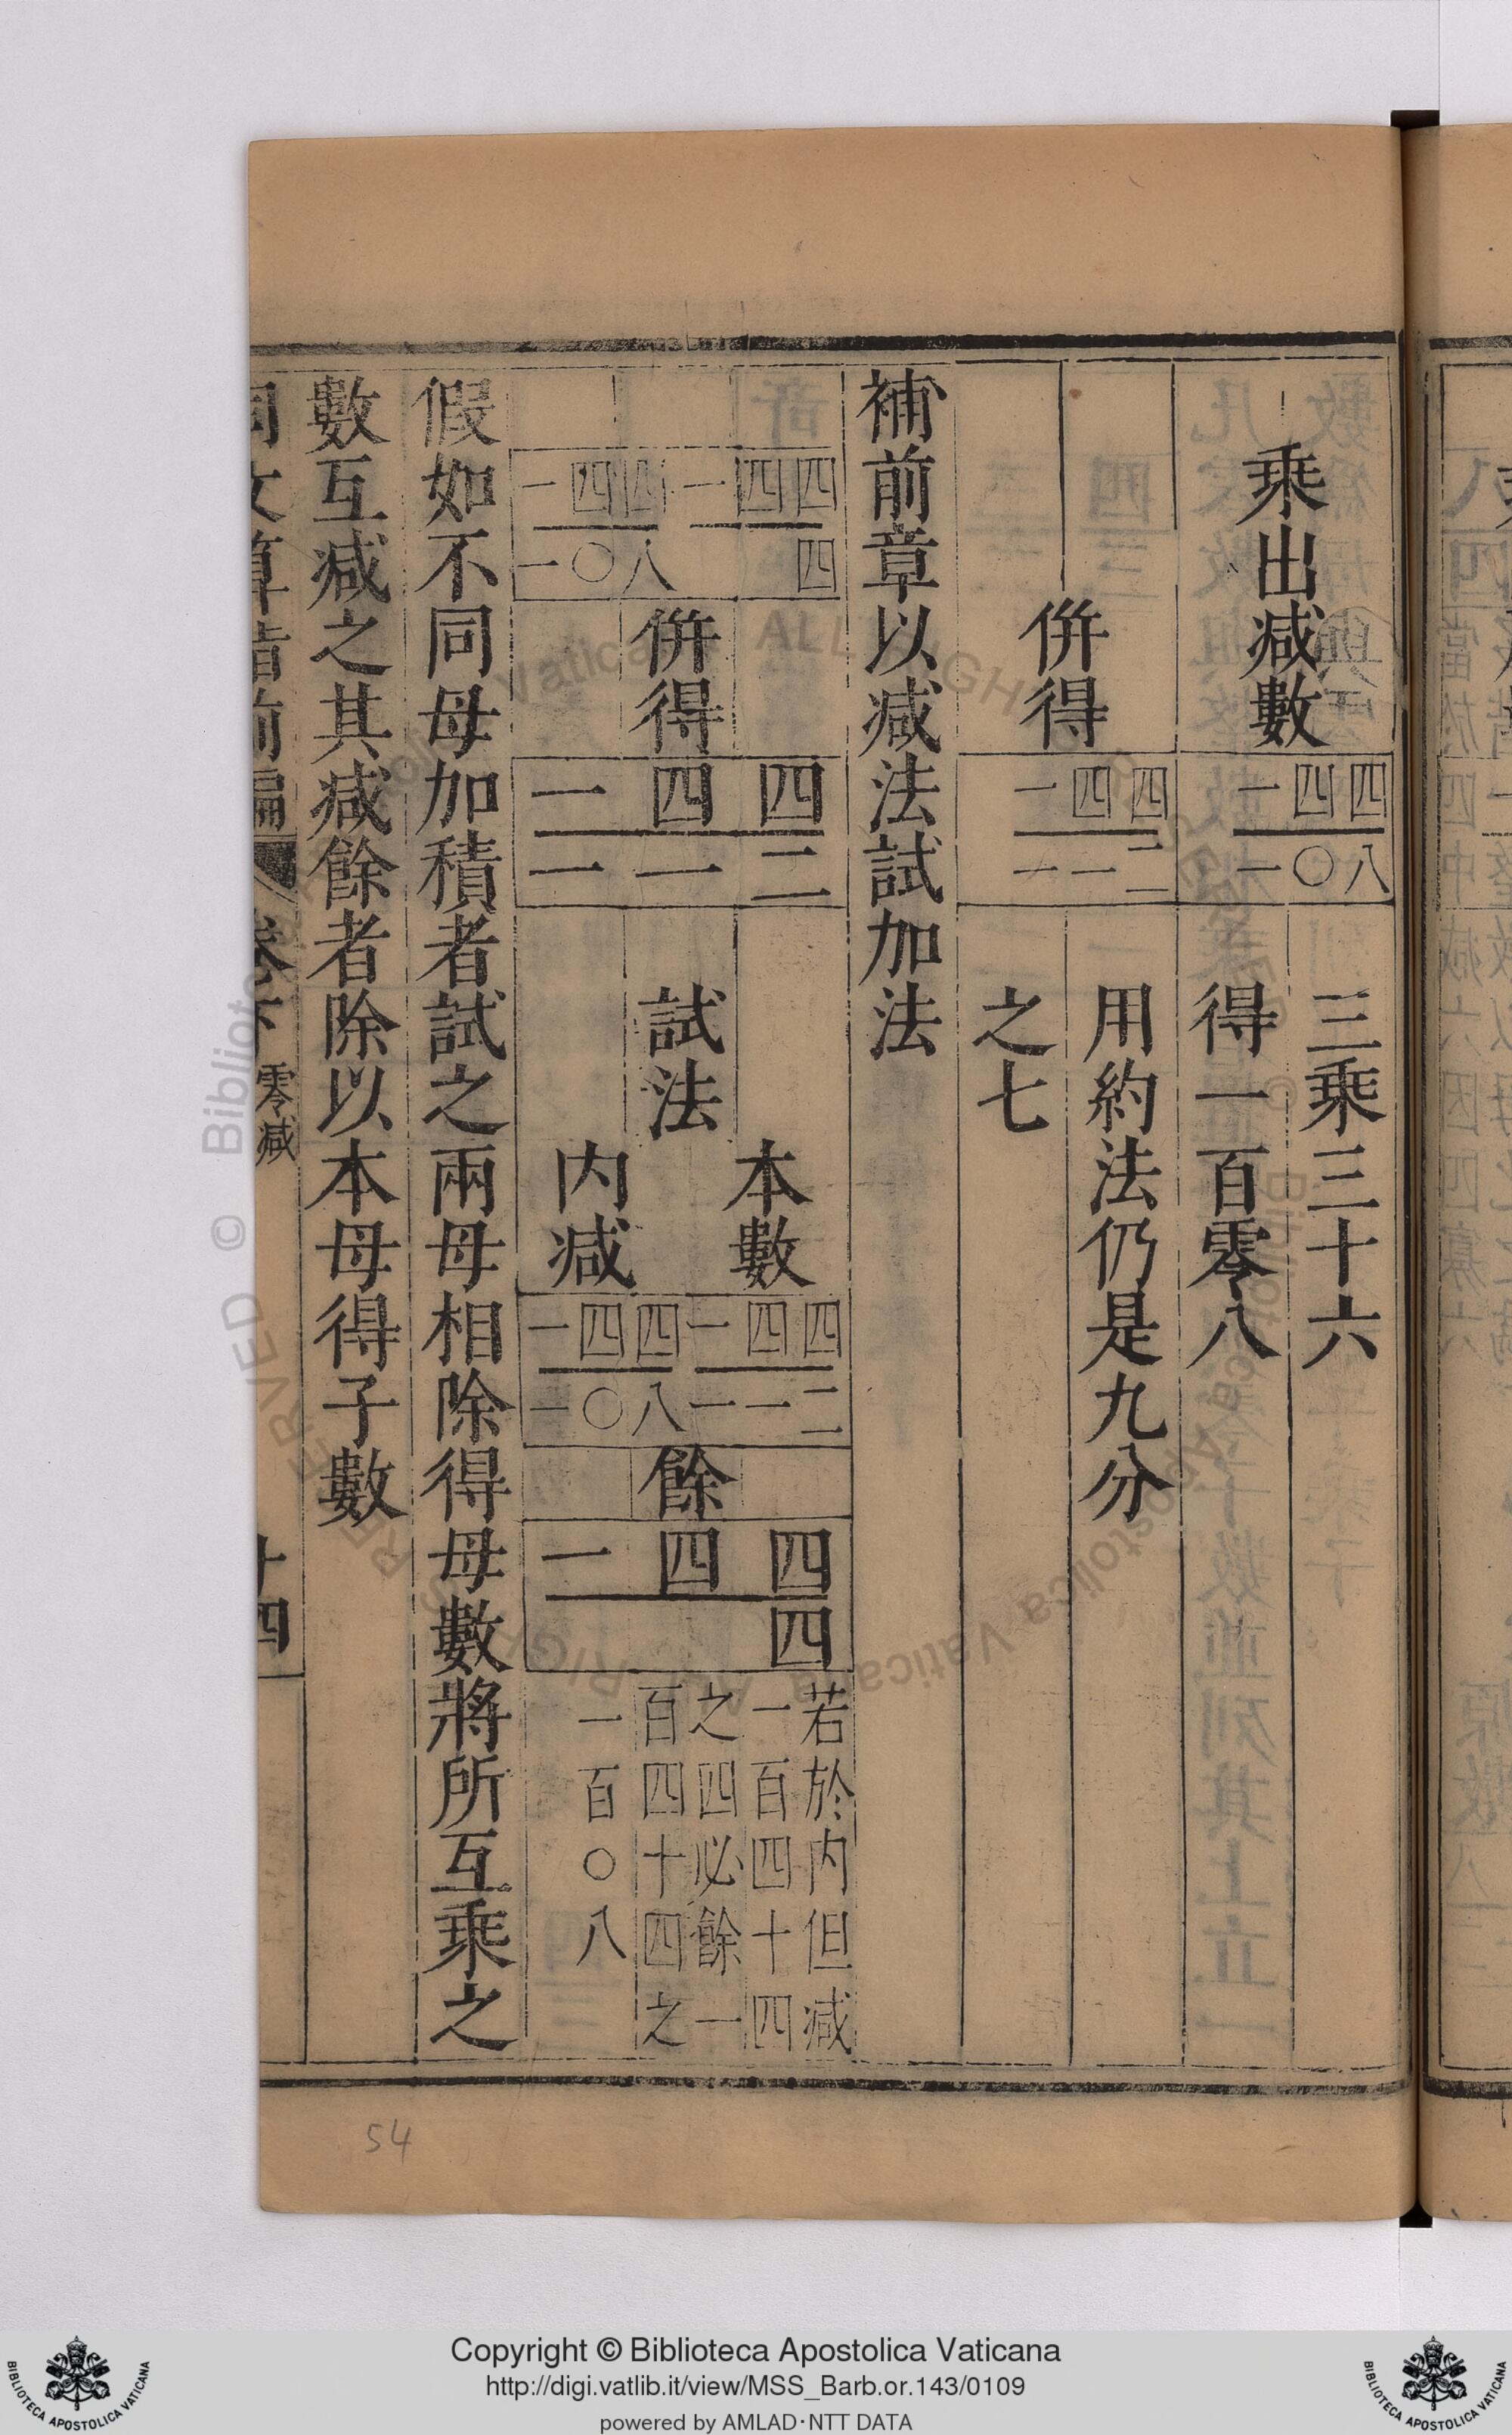 乘出減數
一四四
一〇八
三乘三十六
得一百零八
併得
一四四
一一二
用約法仍是九分
之七
補前章以减法試加法
一四四
四
一四四
一〇八
併得
一四四
一一二
試法
本數
内减
一四四
一一二
一四四
一〇八
餘
一四四
四
若於内但减
一百四十四
之四必餘一
百四十四之
一百〇八
假如不同母加積者試之兩母相除得母數將所互乘之
數互减之其减餘者除以本母得子數
同文算指前編
卷下
零减
十四
54
Copyright © Biblioteca Apostolica Vaticana
http://digi.vatlib.it/view/MSS_Barb.or.143/0109
powered by AMLAD·NTT DATA
BIBLIOTECA APOSTOLICA VATICANA
BIBLIOTECA APOSTOLICA VATICANA